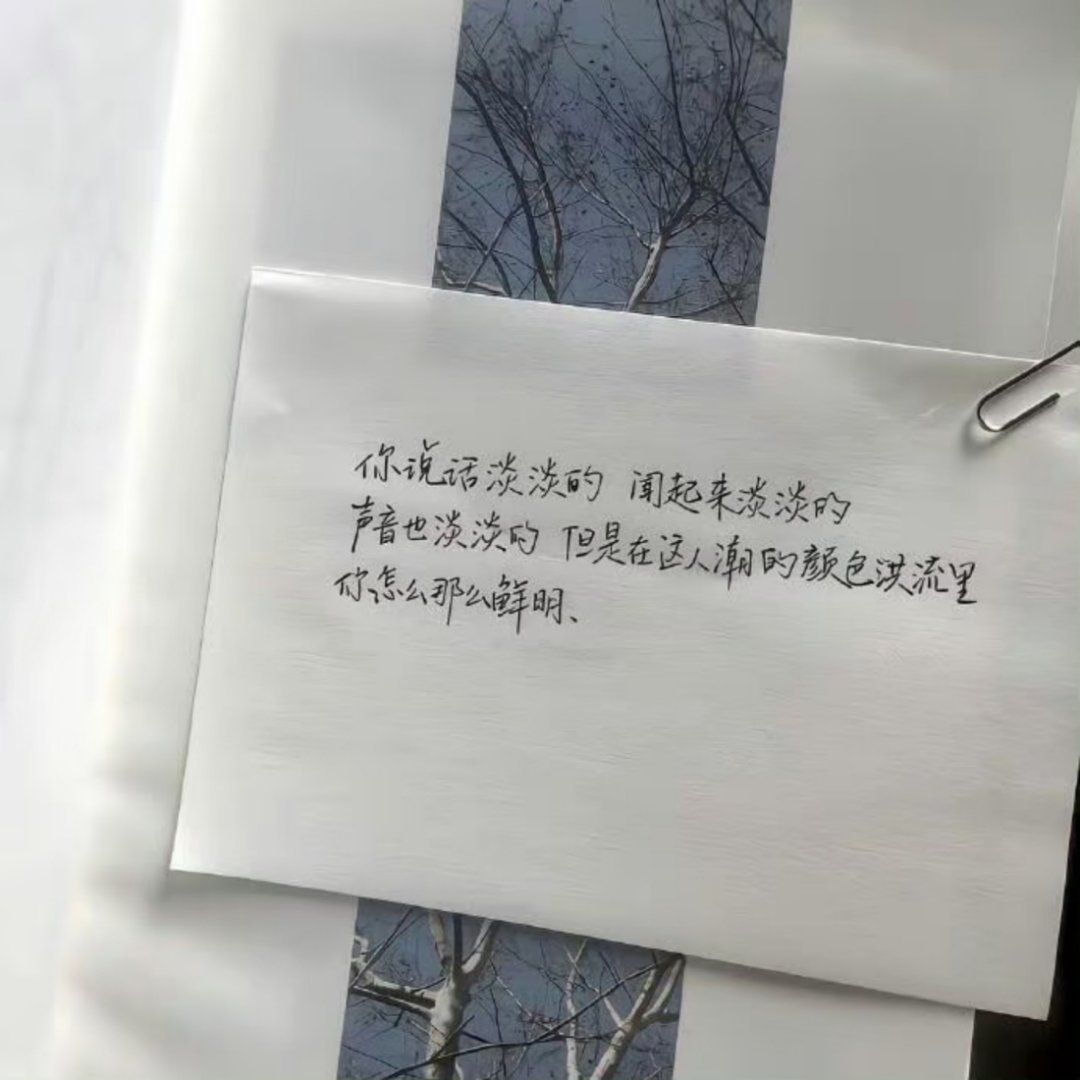 你说话淡淡的 闻起来淡淡的
声音也淡淡的 但是在这人潮的颜色洪流里
你怎么那么鲜明、